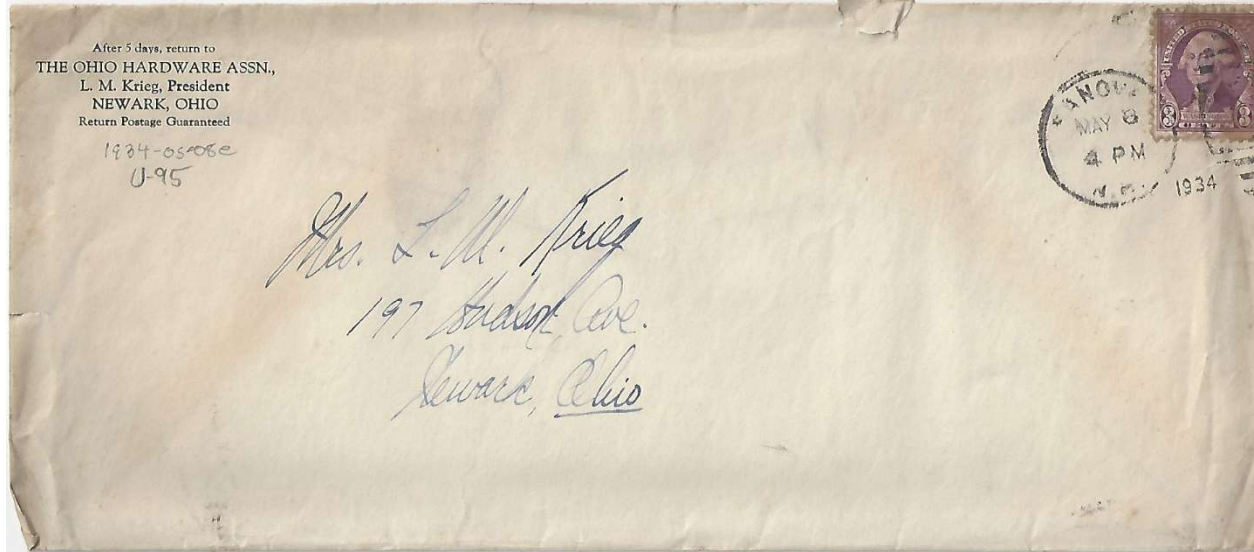 After 5 days, return to
THE OHIO HARDWARE ASSN.,
L. M. Krieg, President
NEWARK, OHIO
Return Postage Guaranteed
1934-05-08e
U-95
UNITED STATES POSTAGE
3 3
MAY 8
4 PM
1934
Mrs. L. M. Krieg
197 Hudson Ave.
Newark, Ohio